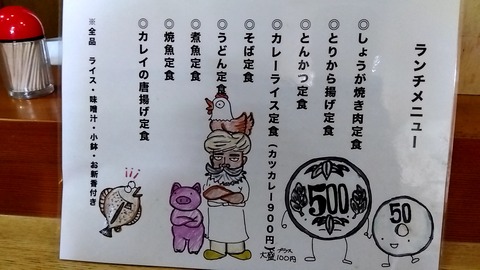 ランチメニュー
◎しょうが焼き肉定食
◎とりから揚げ定食
◎とんかつ定食
◎カレーライス定食（カツカレー９００円）
◎そば定食
◎うどん定食
◎煮魚定食
◎焼魚定食
◎カレイの唐揚げ定食
※全品 ライス・味噌汁・小鉢・お新香付き
500
50
大盛プラス100円